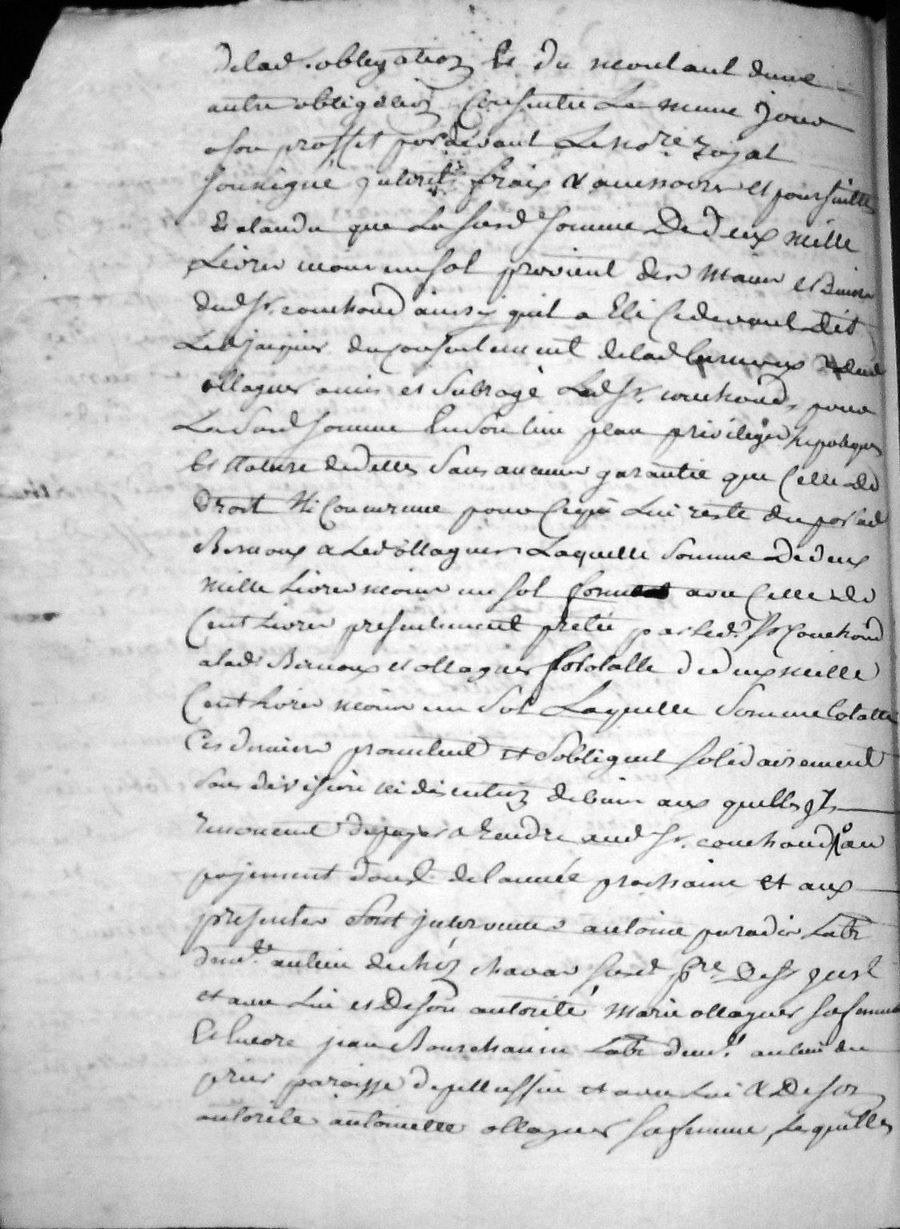 delad. obligation Et du montant dune
autre obligation Consentie Le meme jour
a son proffit pardevant Le no.re royal
soussigné jnterets frais & accessoires et poursuittes
Et atandu que La susd. somme De deux mille
Livres moins un sol provient des mains et Biens
dud. Sr. couchoud ainsy quil a Eté Cy devant dit
Led. jacques du consentement delad. Bernoux & dud.
ollagner a mis et subrogé Led. Sr. couchoud, pour
La susd. somme En son lieu place privilege hipoteques
Et nature de dettes sans aucune garantie que Celle de
droit Ni Concurrence pour Ce qui Lui reste du par lad.
Bernoux & Led. ollagner Laquelle somme De deux
mille Livres moins un sol avec Celle de
Cent Livres presentement pretée par Led. Sr. Couchoud
a lad. Bernoux et ollagner totalle de deux mille
Cent Livres moins un Sol Laquelle somme totalle
Ces derniers promettent et sobligent solidairement
sans division ni discution de biens aux quelles jls
renoncent de payer & rendre aud. Sr. couchoud au
payement daoust de lannée prochaine et aux
presentes sont jntervenus antoine paradis Labr.
dem.t au lieu de chavas susd. p.sse De St. just
et avec Lui et De son autorité Marie ollagner sa femme
Et Encore jean Bonchauin Labr. dem.t au lieu de
prus paroisse de pellussin et avec Lui & De son
autorité antoinette ollagner sa femme, Lesquelles